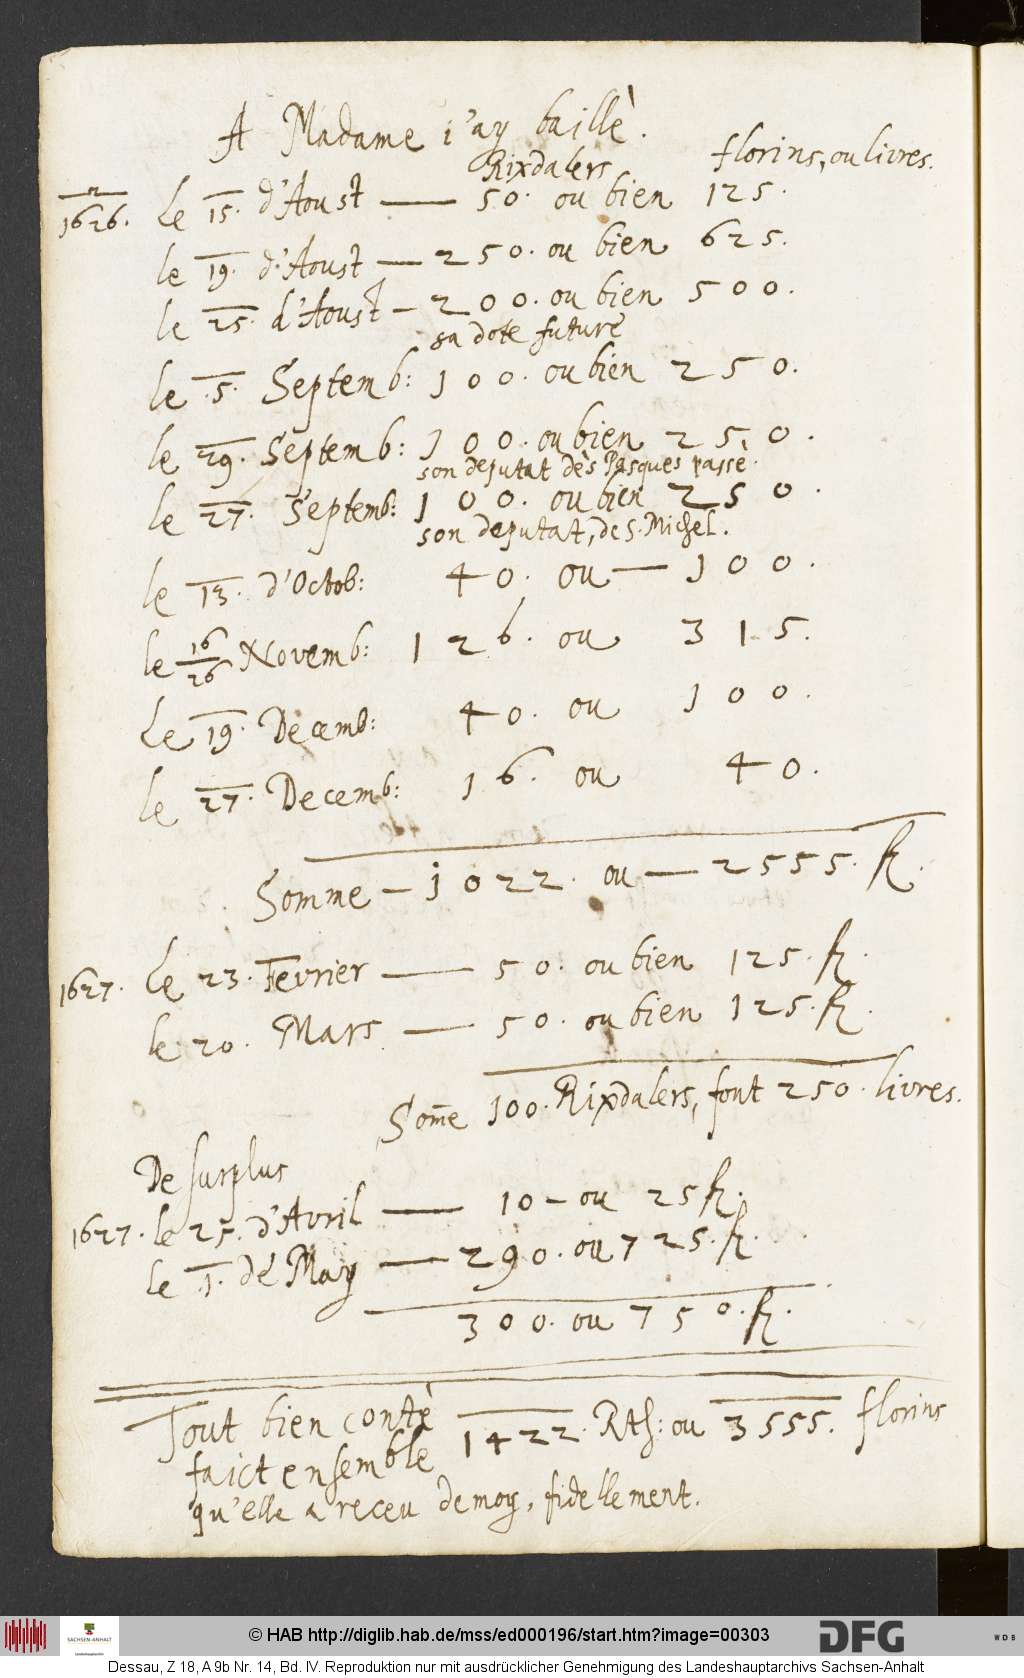 A Madame i'ay baillè.
Rixdalers florins, ou livres.
1626. Le 15. d'Aoust — 50. ou bien 125.
le 19. d'Aoust — 250. ou bien 625.
le 25. d'Aoust — 200. ou bien 500.
sa dote future
le .5. Septemb: 100. ou bien 250.
le 29. Septemb: 100. ou bien 250.
son deputat dès Pasques passè.
le 27. Septemb: 100. ou bien 250.
son deputat, de S. Michel.
le 13. d'Octob: 40. ou — 100.
le 16/26 Novemb: 126. ou 315.
Le 19. Decemb: 40. ou 100.
le 27. Decemb: 16. ou 40.
Somme — 1022. ou — 2555. fl.
1627. Le 23. Fevrier — 50. ou bien 125. fl.
le 20. Mars — 50. ou bien 125. fl.
Som̄e 100. Rixdalers, font 250. livres.
De surplus
1627. le 25. d'Avril — 10 - ou 25 fl.
le .1. de May — 290. ou 725. fl.
300. ou 750. fl.
Tout bien contè
faict ensemble 1422. Rth: ou 3555. florins
qu'elle a receu de moy, fidellement.
SACHSEN-ANHALT
© HAB http://diglib.hab.de/mss/ed000196/start.htm?image=00303
DFG
WDB
Dessau, Z 18, A 9b Nr. 14, Bd. IV. Reproduktion nur mit ausdrücklicher Genehmigung des Landeshauptarchivs Sachsen-Anhalt